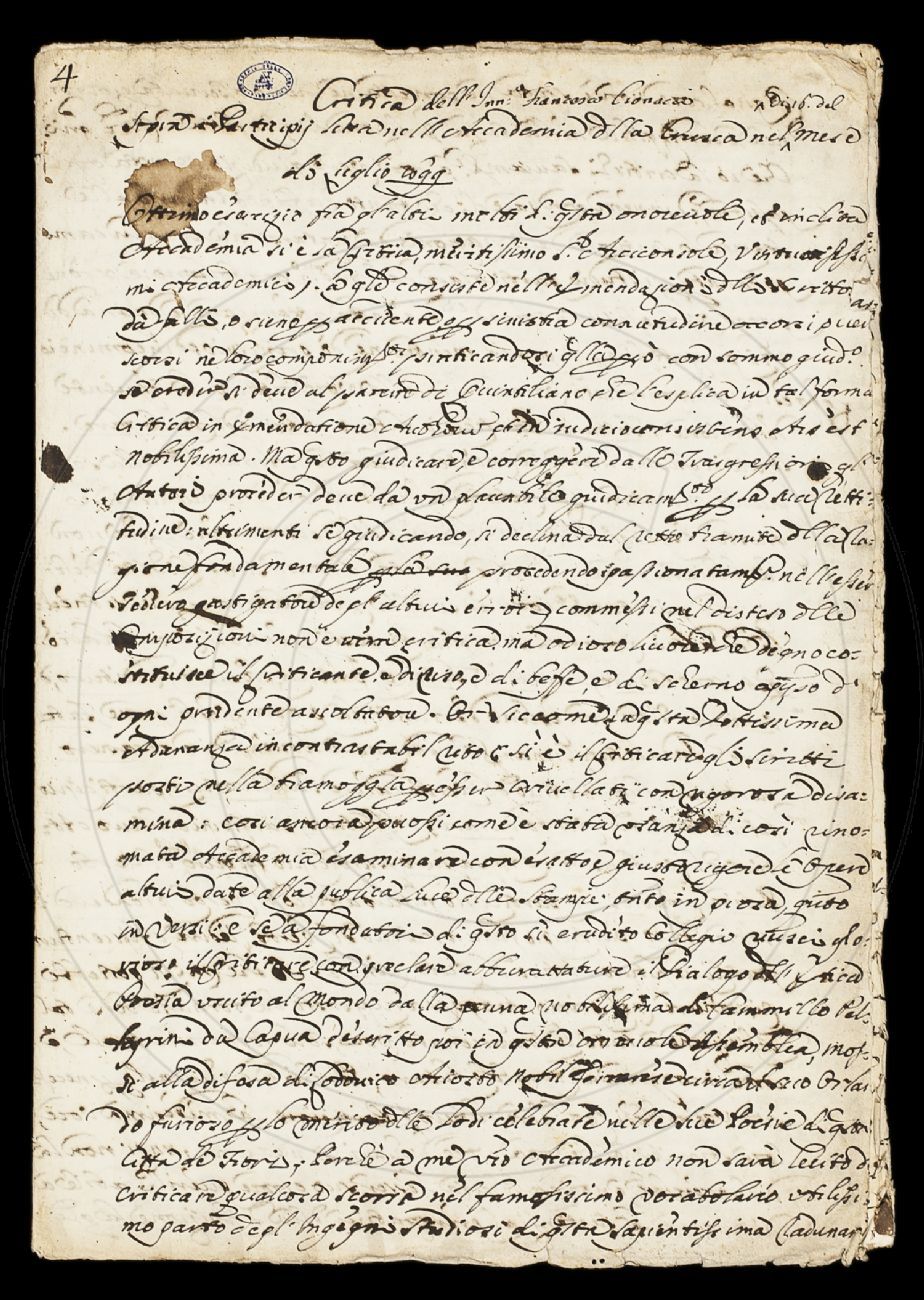 4
Critica dell' Inn: Francesco Cionacci
a Di 16. del
Sopra i Participij letta nell' Accademia d'lla Crusca nel Mese
di luglio 1699
Ottimo esercizio fra gl'altri molti di q'sta onorevole, et inclita
Accademia si è la Critica, meritissimo S.r Arciconsolo, Virtuosissi-
mi Accademici, la q'le consiste nell' Emendazione d'lle Scritto
da falli, o sieno p accidente, o p sinistra consuetudine occorsi, o vei
scorsi ne loro componim.ti con sommo giud.o
se creder si deve al parere di Quintiliano che l'esplica in tal forma
Critica in emendatione et in iudicio est
nobilissima. Ma q'sto giudicare, e correggere dalle Trasgressioni gl'
Autori proceder deve da un plausibile giudicam.to p la sua retti-
tudine: altrimenti se giudicando, si declina dal retto tramite d'lla Ra-
gione fondamentale procedendo passionatam.te nell' esser
severo gastigatore degl' altrui errori commessi nel disteso d'lle
Composizioni non è vera critica, ma odioso livore che degno co-
stituisce il Criticante, e di riso, e di beffe, e di scherno app'sso d'
ogni prudente ascoltatore. Or siccome in q'sta Dottissima
Adunanza incontrastabil rito si è il criticare gli scritti
posti nella tramoggia p esser crivellati con rigorosa disa-
mina: così ancora puossi come è stata usanza di così rino-
mata Accademia esaminare con esatto, e giusto rigore l' Opere
altrui date alla publica luce d'lle stampe, tanto in prosa, quanto
in versi: e se a fondatori di q'sto sì erudito Collegio riuscì glo-
rioso il criticare con preclare abburattature il Dialogo dell' Epica
Poesia uscito al Mondo dalla penna nobilissima di Cammillo Pel-
legrini da Capua descritto poi in q'sta orrevole Assemblea, mos-
si alla difesa di Lodovico Ariosto Nobil Ferrarese circa il suo Orlan
do furioso p lo merito d'lle Lodi celebrate nelle sue Poesie di q'sta
Città de Fiori; Perchè a me vro Accademico non sarà lecito di
criticare qualcosa scorsa nel famosissimo vocabolario utilissi-
mo parto degl' Ingegni studiosi di q'sta sapientissima Radunan